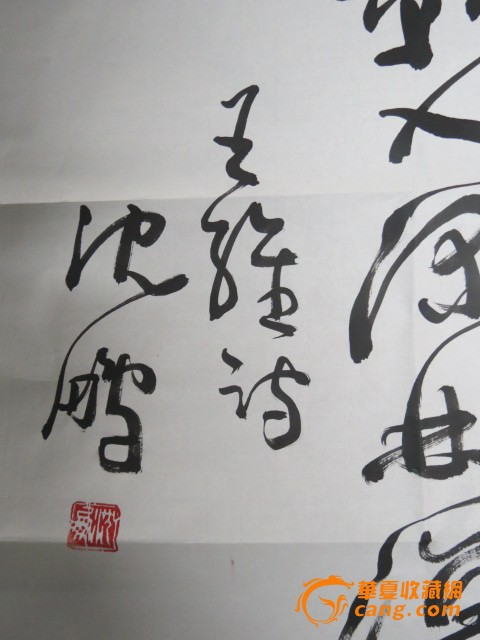 入深林
王維诗
沈鹏
華夏收藏網
cang.com